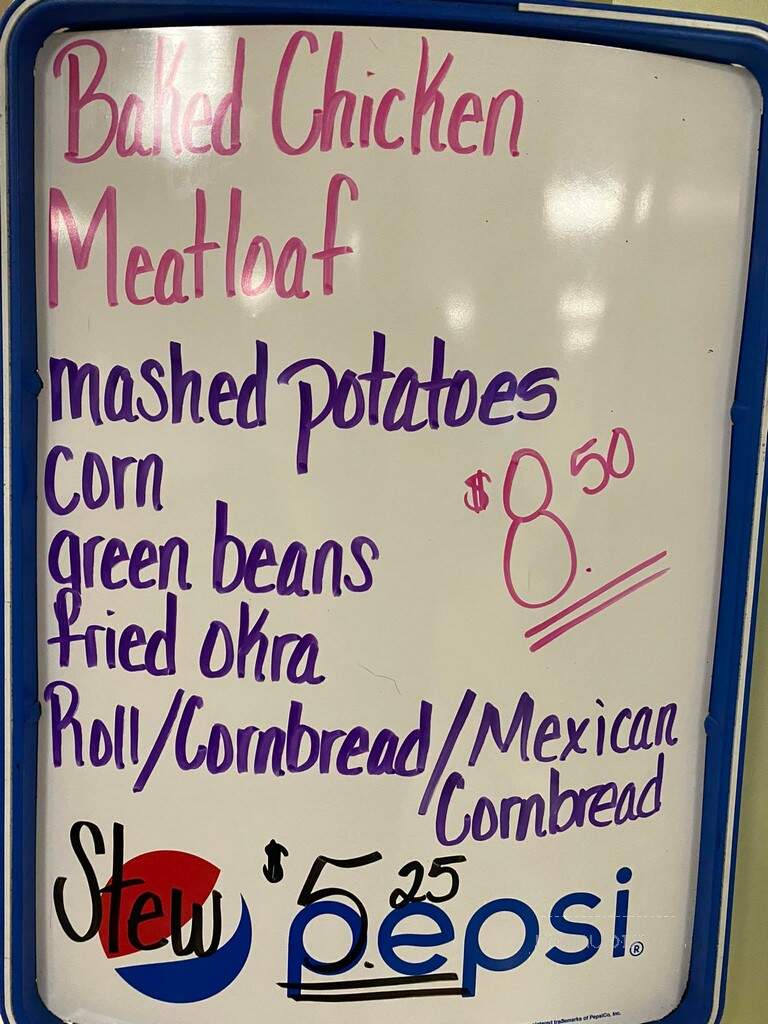 Baked Chicken
Meatloaf
mashed potatoes
corn
green beans
$8.50
fried okra
Roll/Cornbread/Mexican
Cornbread
Stew $5.25
pepsi®
trademarks of PepsiCo, Inc.